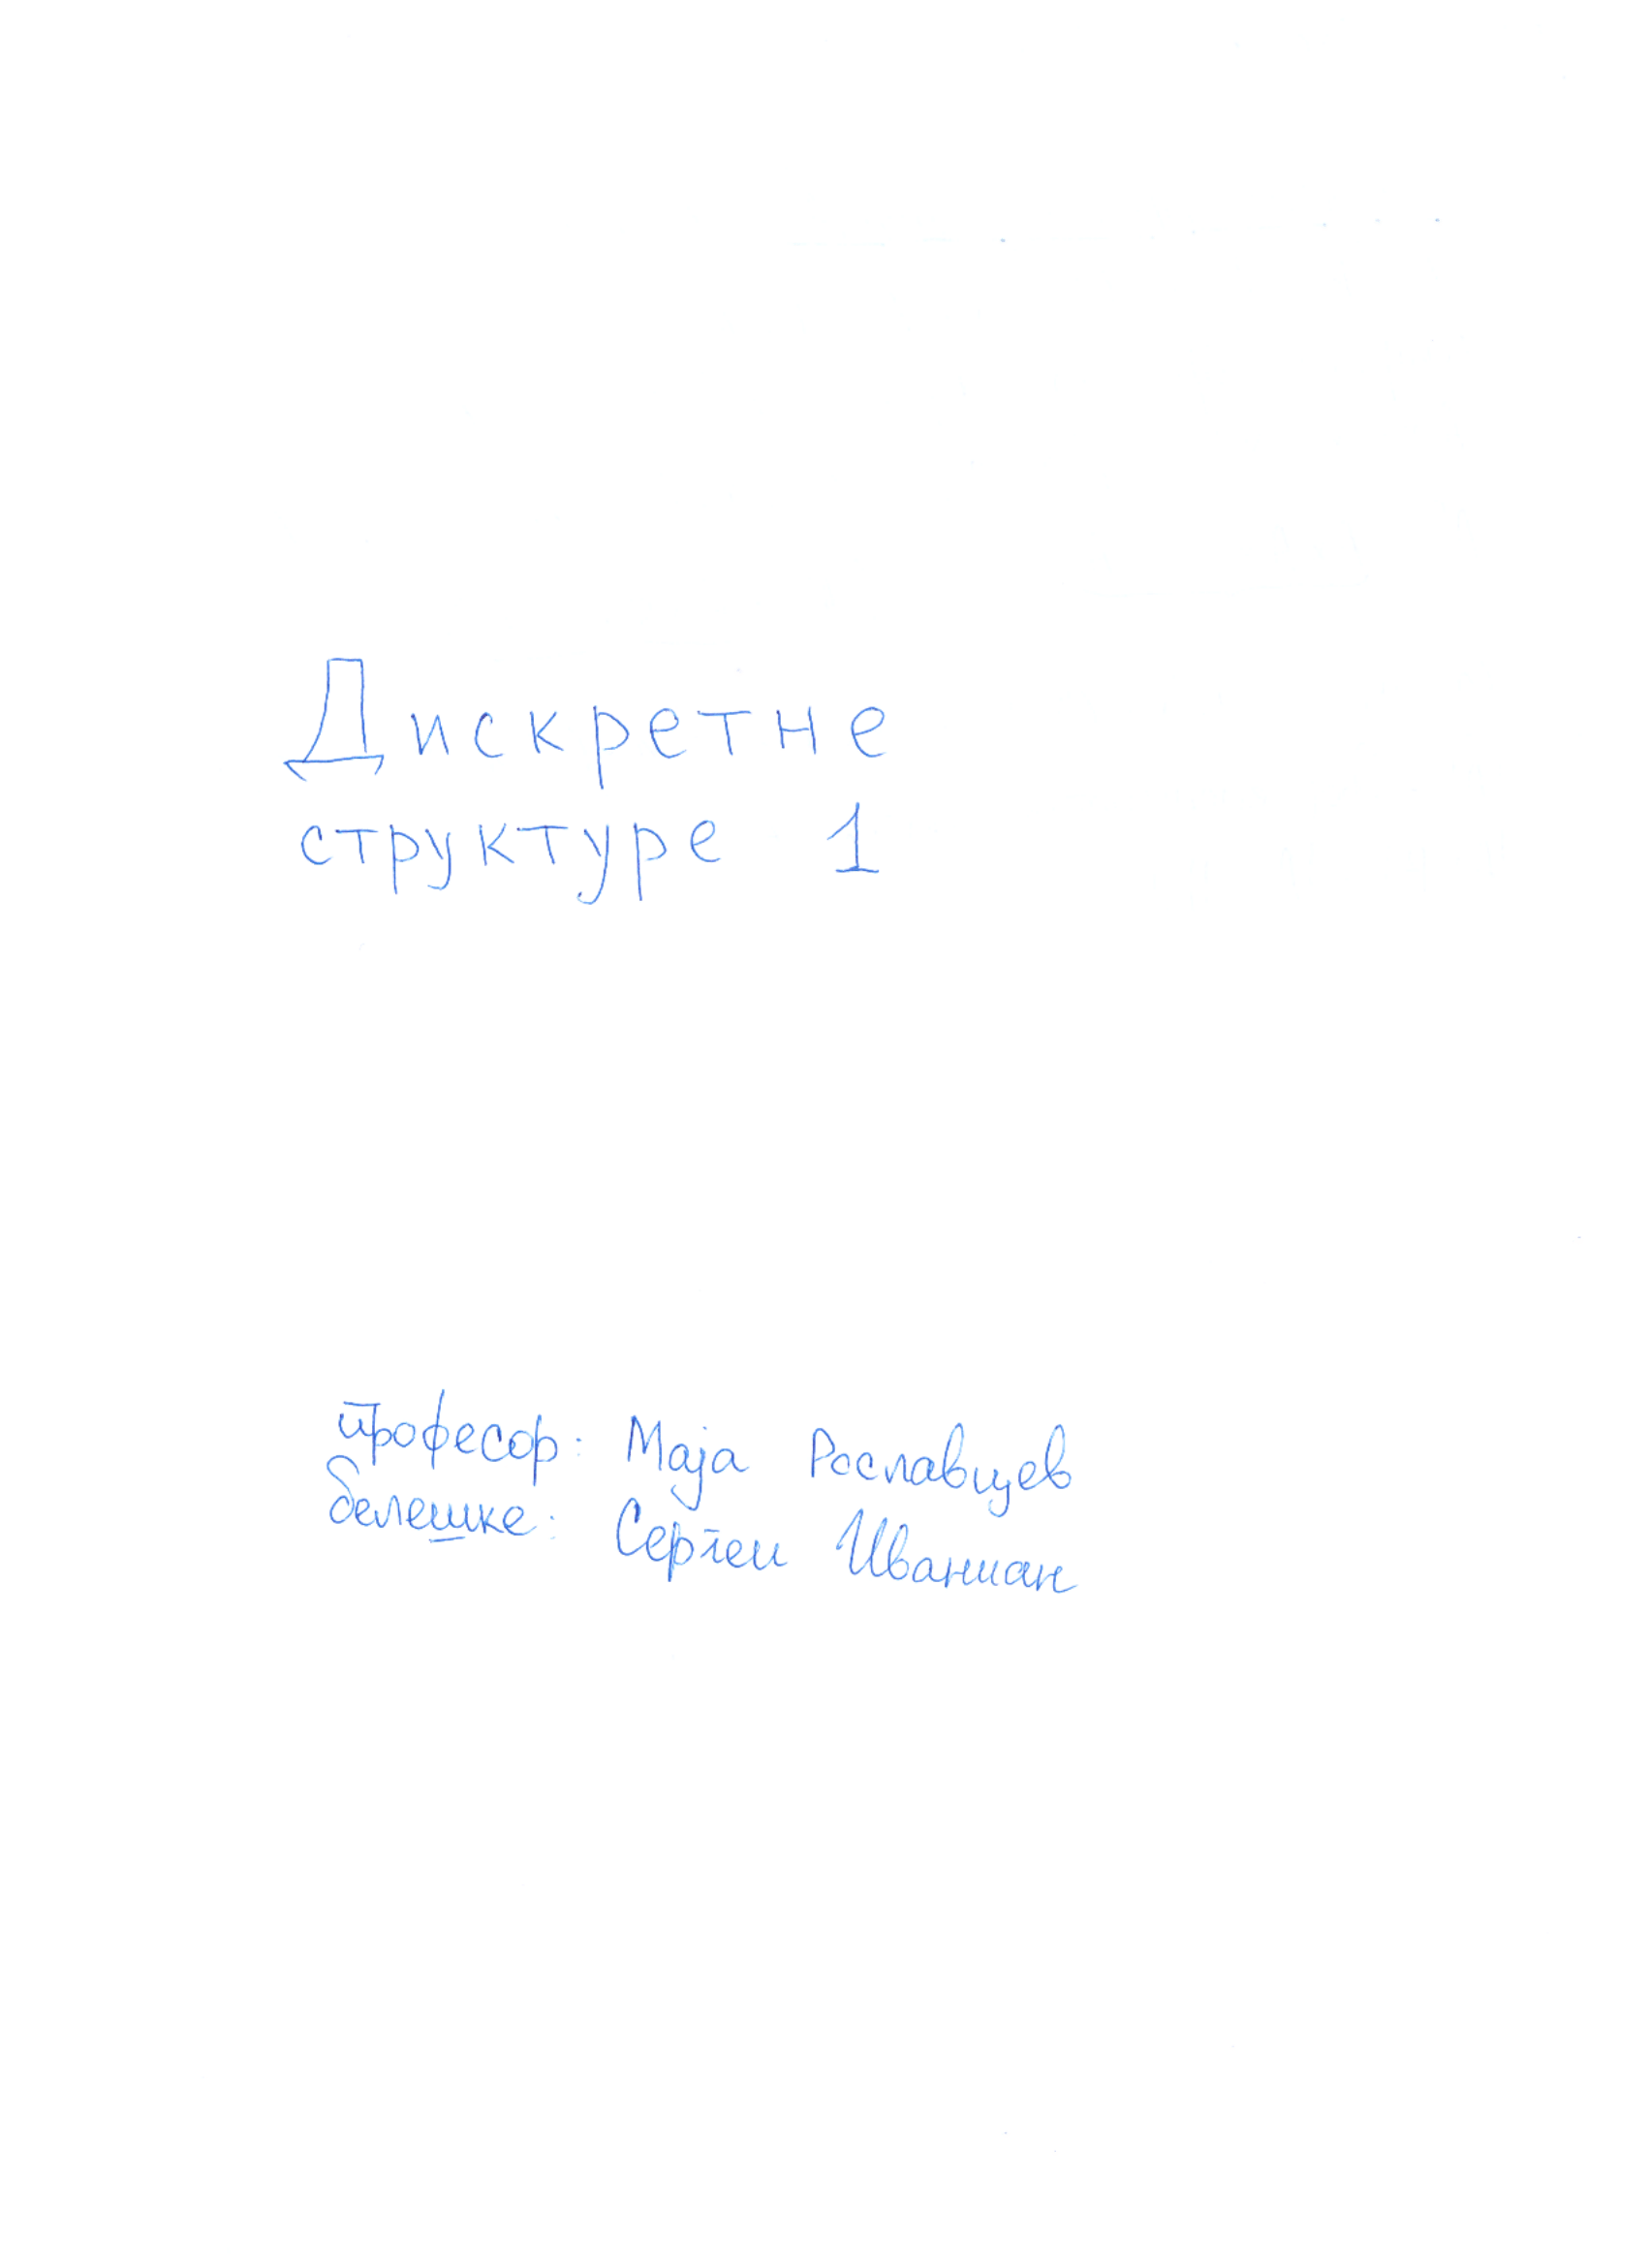 Дискретне
структуре 1
професор: Маја Рославцев
белешке: Сергеи Иваниан